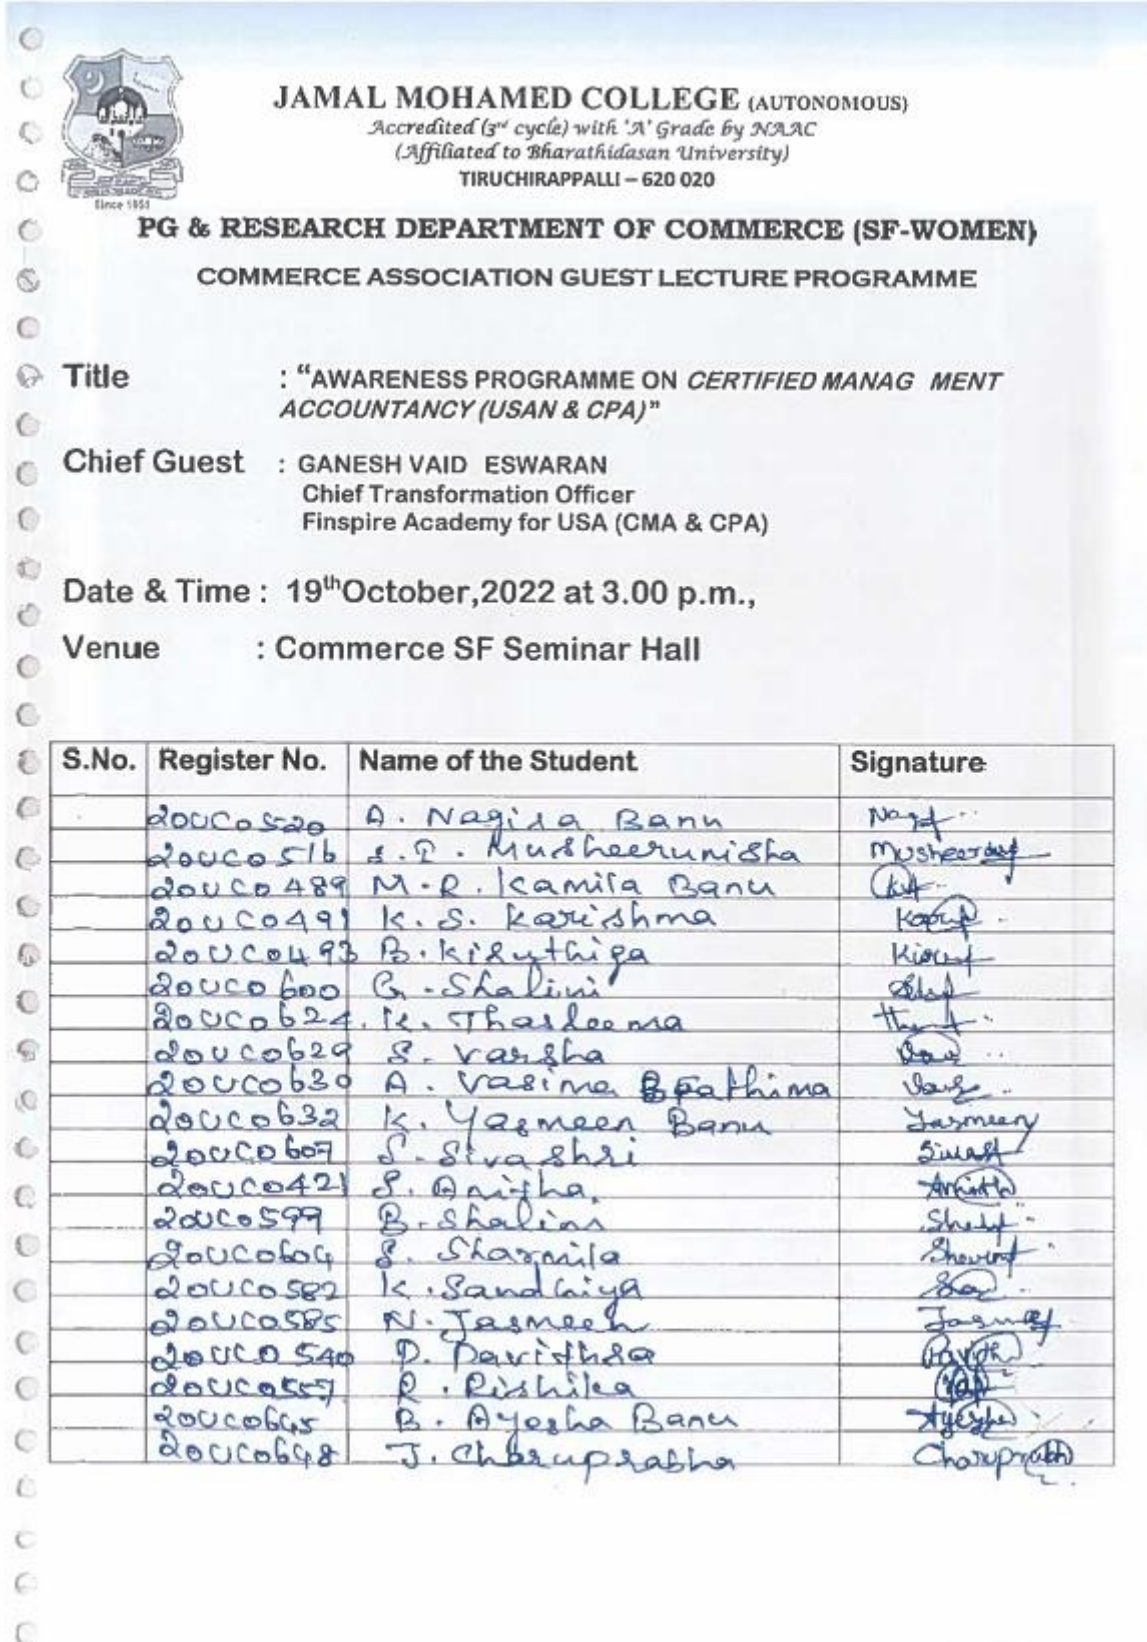 JAMAL MOHAMED COLLEGE (AUTONOMOUS)
Accredited (3rd cycle) with 'A' Grade by NAAC
(Affiliated to Bharathidasan University)
TIRUCHIRAPPALLI – 620 020
Since 1951
PG & RESEARCH DEPARTMENT OF COMMERCE (SF-WOMEN)
COMMERCE ASSOCIATION GUEST LECTURE PROGRAMME
Title : "AWARENESS PROGRAMME ON CERTIFIED MANAG MENT
ACCOUNTANCY (USAN & CPA)"
Chief Guest : GANESH VAID ESWARAN
Chief Transformation Officer
Finspire Academy for USA (CMA & CPA)
Date & Time : 19thOctober,2022 at 3.00 p.m.,
Venue : Commerce SF Seminar Hall
S.No. Register No. Name of the Student Signature
20UCO520 A. Nagisa Banu
20UCO516 S.P. Musheerunisha
20UCO489 M.R. Kamila Banu
20UCO491 K.S. Karishma
20UCO493 B. Kiruthiga
20UCO600 G. Shalini
20UCO624 K. Thasleema
20UCO629 S. Varsha
20UCO630 A. Vasima Beathima
20UCO632 K. Yasmeen Banu Yasmeen
20UCO607 S. Sivashri
20UCO421 S. Anitha
20UCO599 B. Shalini
20UCO604 S. Sharmila
20UCO582 K. Sandhiya
20UCO585 N. Jasmeen
20UCO540 P. Pavithra
20UCO557 R. Rishika
20UCO645 B. Ayesha Banu
20UCO648 J. Charuprabha Charuprabh